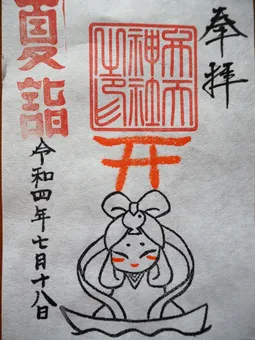 奉拝
天
神社
之印
夏詣
令和四年七月十八日